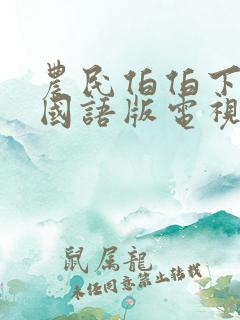 農民伯伯下
國語版電視
鼠属龍
未任同意禁止转载